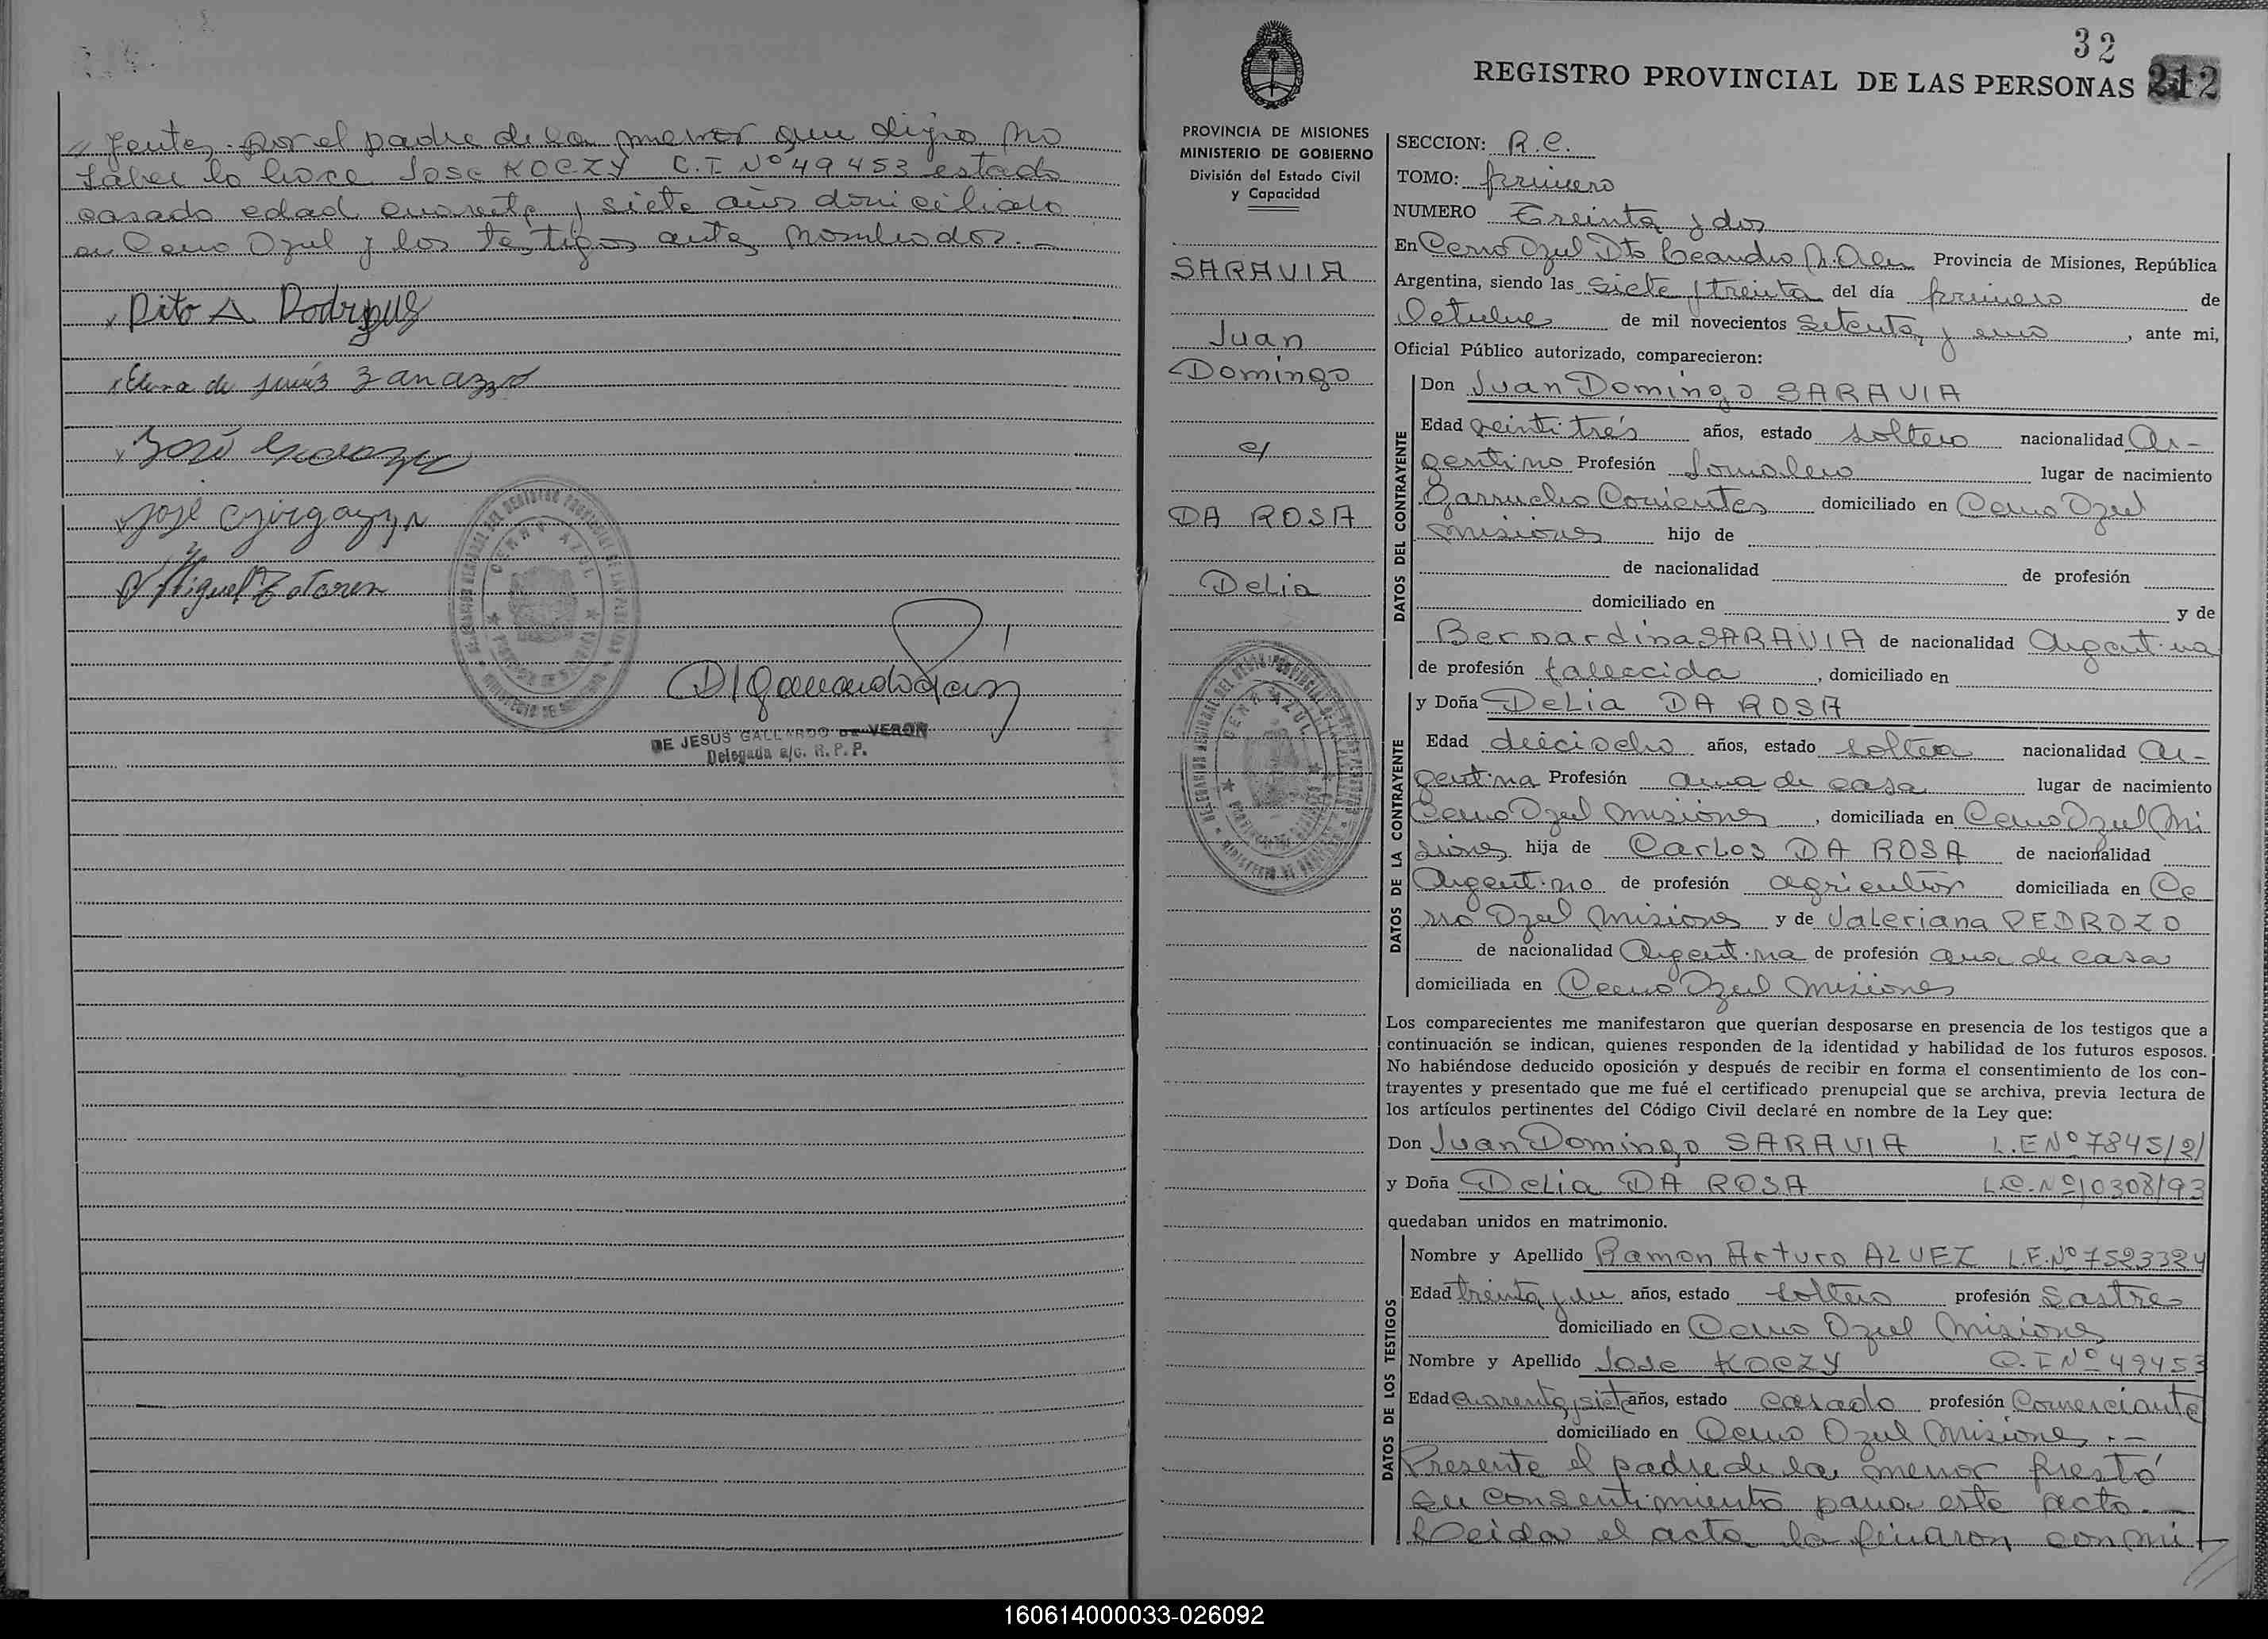 yentes. por el padre de la menor que dijo no
saber lo hace Jose KOCZY C.I Nº 49.453 estado
casado edad cuarenta y siete años domiciliado
en Cerro Azul y los testigos antes nombrados.-
Elena de Jesús Zanazzo
José
José
Miguel
DE JESUS GALLARDO DE VERON
Delegada a/c. R. P. P.
32
REGISTRO PROVINCIAL DE LAS PERSONAS 212
PROVINCIA DE MISIONES
MINISTERIO DE GOBIERNO
División del Estado Civil
y Capacidad
SARAVIA
Juan
Domingo
c/
DA ROSA
Delia
SECCION: R.C.
TOMO: primero
NUMERO Treinta y dos
En Cerro Azul Dto Leandro N. Alem Provincia de Misiones, República
Argentina, siendo las siete y treinta del día primero de
Octubre de mil novecientos setenta y uno, ante mi,
Oficial Público autorizado, comparecieron:
DATOS DEL CONTRAYENTE
Don Juan Domingo SARAVIA
Edad veinti trés años, estado soltero nacionalidad Ar-
gentino Profesión Jornalero lugar de nacimiento
Garruchos Corrientes domiciliado en Cerro Azul
Misiones hijo de
de nacionalidad de profesión
domiciliado en y de
Bernardina SARAVIA de nacionalidad Argentina
de profesión fallecida, domiciliado en
DATOS DE LA CONTRAYENTE
y Doña Delia DA ROSA
Edad dieciocho años, estado soltera nacionalidad Ar-
gentina Profesión ama de casa lugar de nacimiento
Cerro Azul Misiones, domiciliada en Cerro Azul Mi
siones hija de Carlos DA ROSA de nacionalidad
Argentino de profesión agricultor domiciliada en Ce
rro Azul Misiones y de Valeriana PEDROZO
de nacionalidad Argentina de profesión ama de casa
domiciliada en Cerro Azul Misiones
Los comparecientes me manifestaron que querían desposarse en presencia de los testigos que a
continuación se indican, quienes responden de la identidad y habilidad de los futuros esposos.
No habiéndose deducido oposición y después de recibir en forma el consentimiento de los con-
trayentes y presentado que me fué el certificado prenupcial que se archiva, previa lectura de
los artículos pertinentes del Código Civil declaré en nombre de la Ley que:
Don Juan Domingo SARAVIA L.E Nº 7845121
y Doña Delia DA ROSA L.C. Nº 10308193
quedaban unidos en matrimonio.
DATOS DE LOS TESTIGOS
Nombre y Apellido Ramon Arturo ALVEZ L.E. Nº 7523324
Edad treinta y un años, estado soltero profesión Sastre
domiciliado en Cerro Azul Misiones
Nombre y Apellido Jose KOCZY C.I Nº 49453
Edad cuarenta y siete años, estado casado profesión Comerciante
domiciliado en Cerro Azul Misiones.-
Presente el padre de la menor prestó
su consentimiento para este acto.-
Leida el acta la firmaron con mi
160614000033-026092